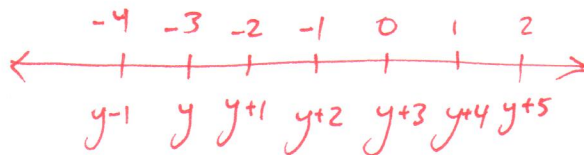 -4 -3 -2 -1 0 1 2
y-1 y y+1 y+2 y+3 y+4 y+5